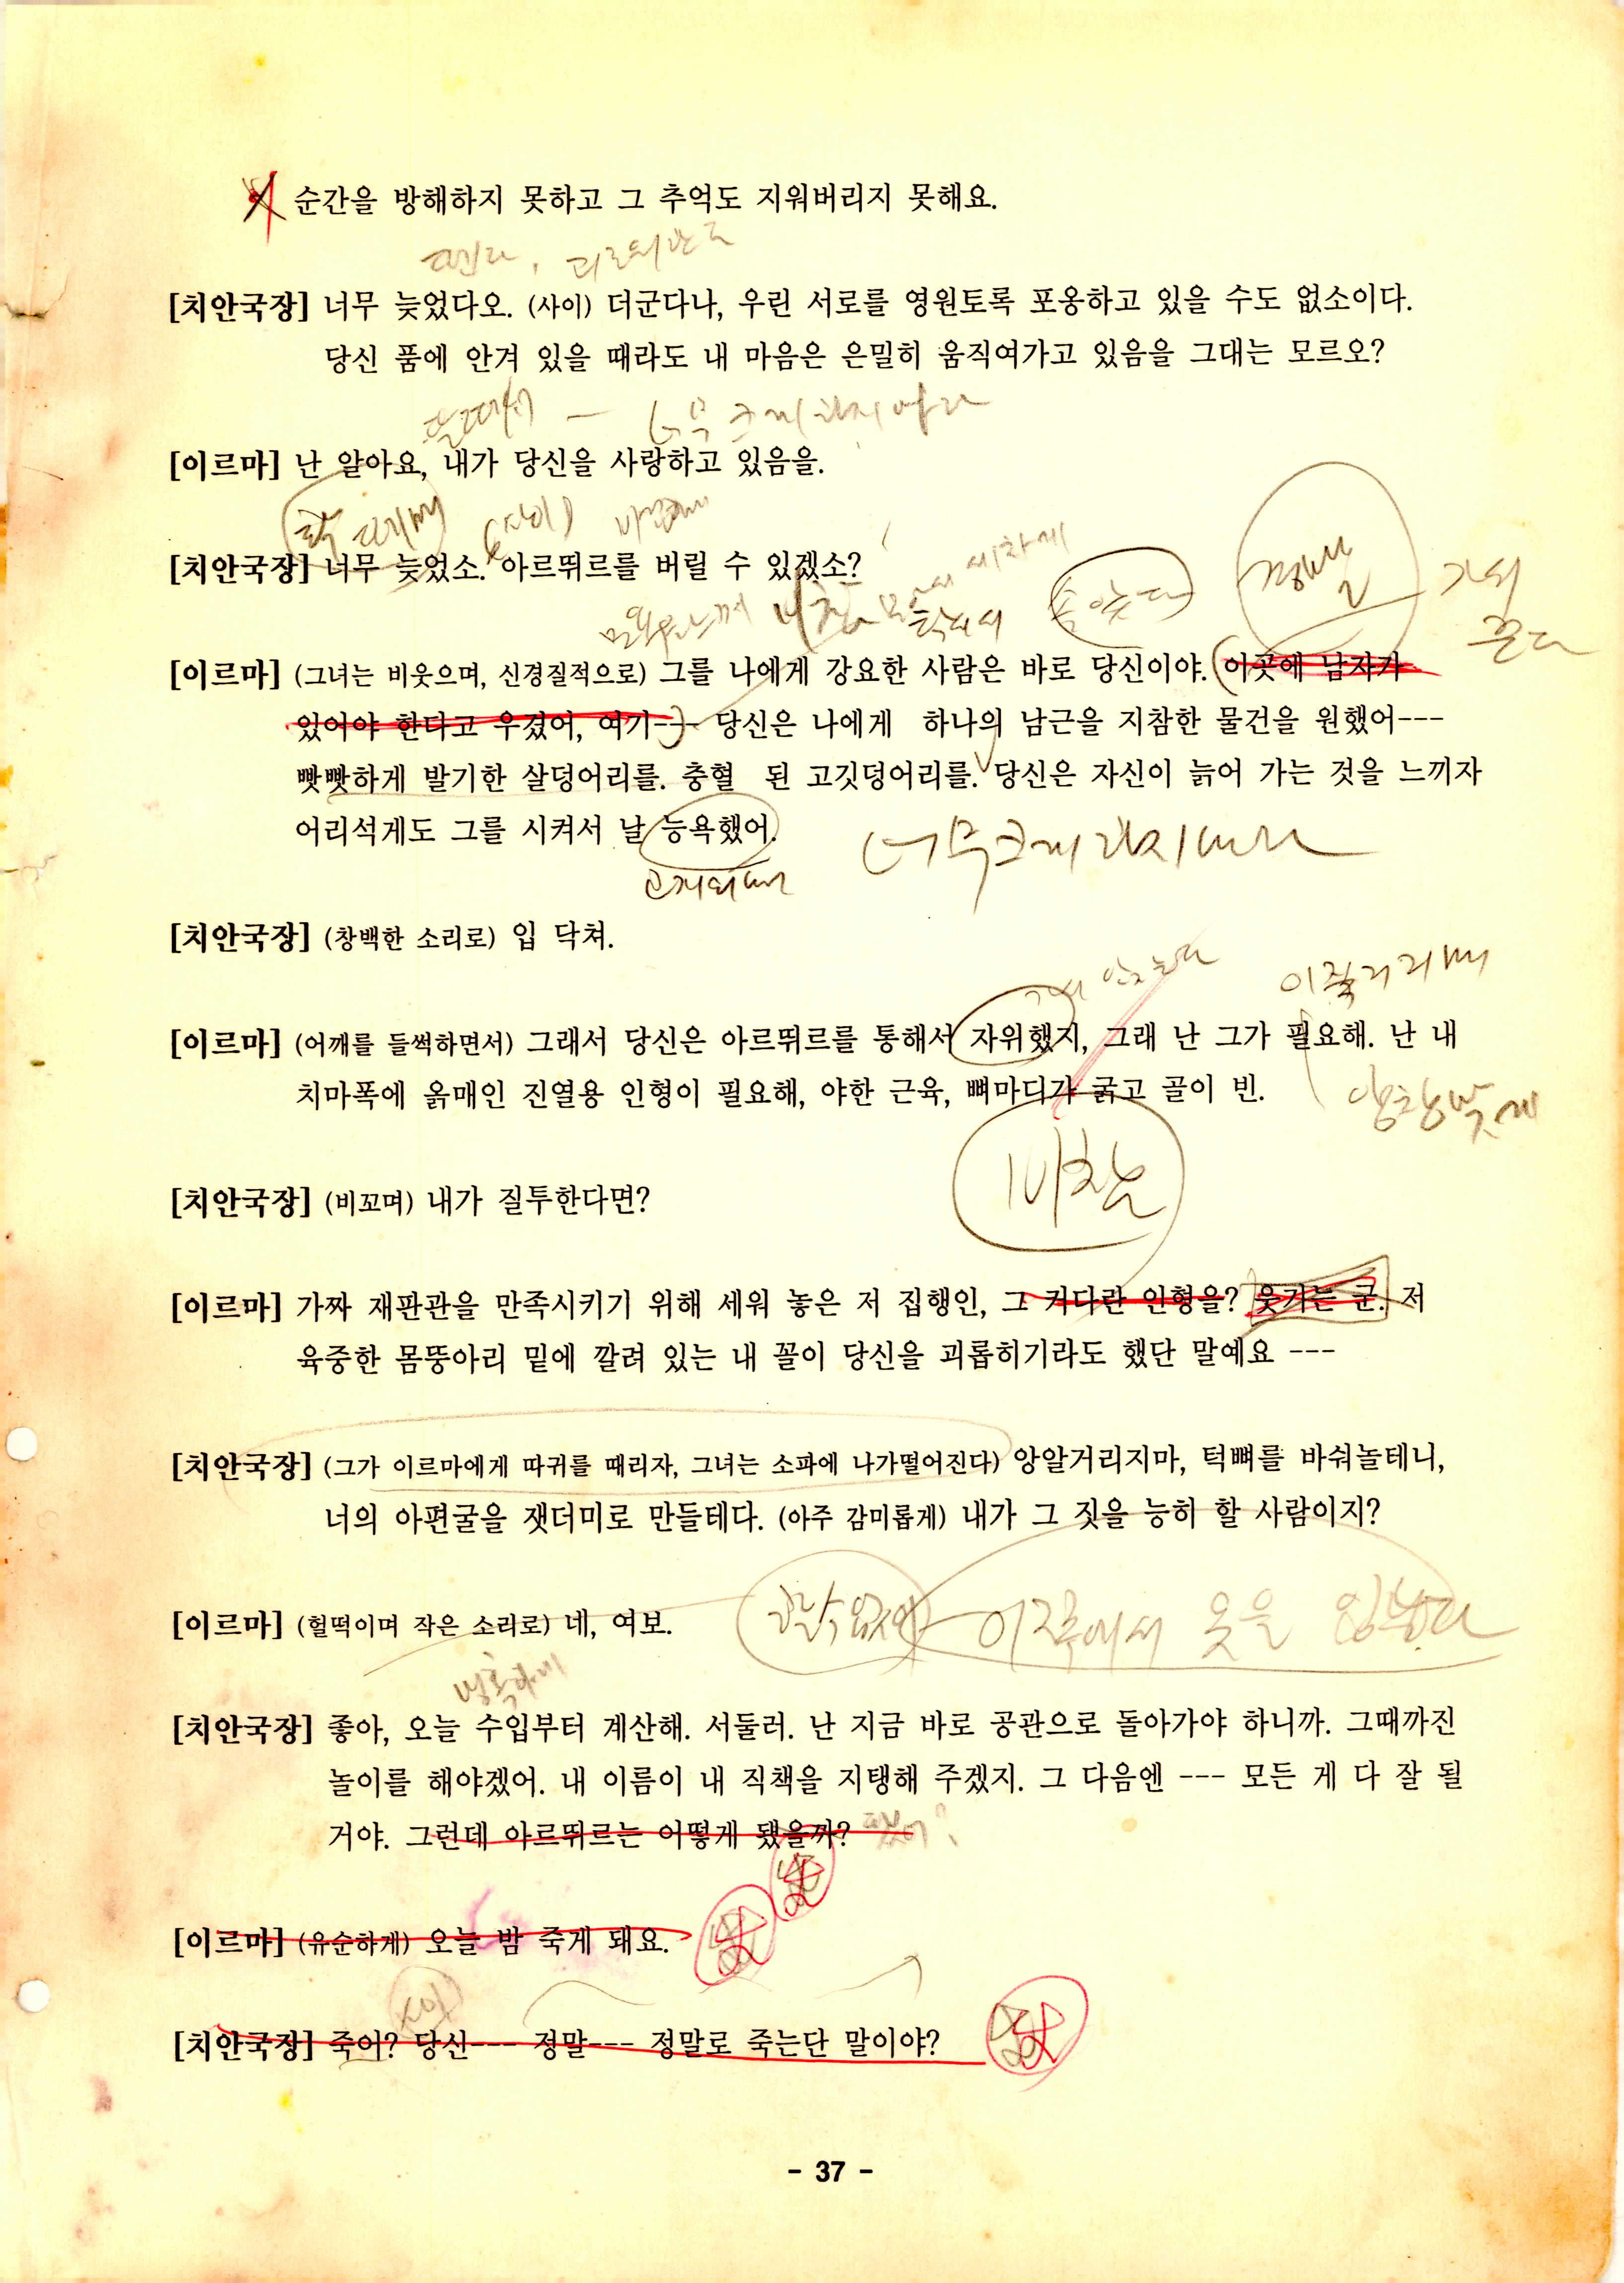 순간을 방해하지 못하고 그 추억도 지워버리지 못해요.
[치안국장] 너무 늦었다오. (사이) 더군다나, 우린 서로를 영원토록 포옹하고 있을 수도 없소이다.
당신 품에 안겨 있을 때라도 내 마음은 은밀히 움직여가고 있음을 그대는 모르오?
너무 크게 하지 마라
[이르마] 난 알아요, 내가 당신을 사랑하고 있음을.
(사이)
[치안국장] 너무 늦었소. 아르뛰르를 버릴 수 있겠소?
경멸
가서
[이르마] (그녀는 비웃으며, 신경질적으로) 그를 나에게 강요한 사람은 바로 당신이야. (이곳에 남자가
있어야 한다고 우겼어, 여기---) 당신은 나에게 하나의 남근을 지참한 물건을 원했어---
빳빳하게 발기한 살덩어리를. 충혈 된 고깃덩어리를. 당신은 자신이 늙어 가는 것을 느끼자
어리석게도 그를 시켜서 날 능욕했어.
너무 크게 하지 마라
[치안국장] (창백한 소리로) 입 닥쳐.
[이르마] (어깨를 들썩하면서) 그래서 당신은 아르뛰르를 통해서 자위했지, 그래 난 그가 필요해. 난 내
치마폭에 옭매인 진열용 인형이 필요해, 야한 근육, 뼈마디가 굵고 골이 빈.
비참
[치안국장] (비꼬며) 내가 질투한다면?
[이르마] 가짜 재판관을 만족시키기 위해 세워 놓은 저 집행인, 그 커다란 인형을? 웃기는 군. 저
육중한 몸뚱아리 밑에 깔려 있는 내 꼴이 당신을 괴롭히기라도 했단 말예요 ---
[치안국장] (그가 이르마에게 따귀를 때리자, 그녀는 소파에 나가떨어진다) 앙알거리지마, 턱뼈를 바숴놀테니,
너의 아편굴을 잿더미로 만들테다. (아주 감미롭게) 내가 그 짓을 능히 할 사람이지?
[이르마] (헐떡이며 작은 소리로) 네, 여보.
할수없이 이쪽에서 옷을 입는다
냉혹하게
[치안국장] 좋아, 오늘 수입부터 계산해. 서둘러. 난 지금 바로 공관으로 돌아가야 하니까. 그때까진
놀이를 해야겠어. 내 이름이 내 직책을 지탱해 주겠지. 그 다음엔 --- 모든 게 다 잘 될
거야. 그런데 아르뛰르는 어떻게 됐을까? 됐어?
[이르마] (유순하게) 오늘 밤 죽게 돼요.
사이
[치안국장] 죽어? 당신--- 정말--- 정말로 죽는단 말이야?
- 37 -